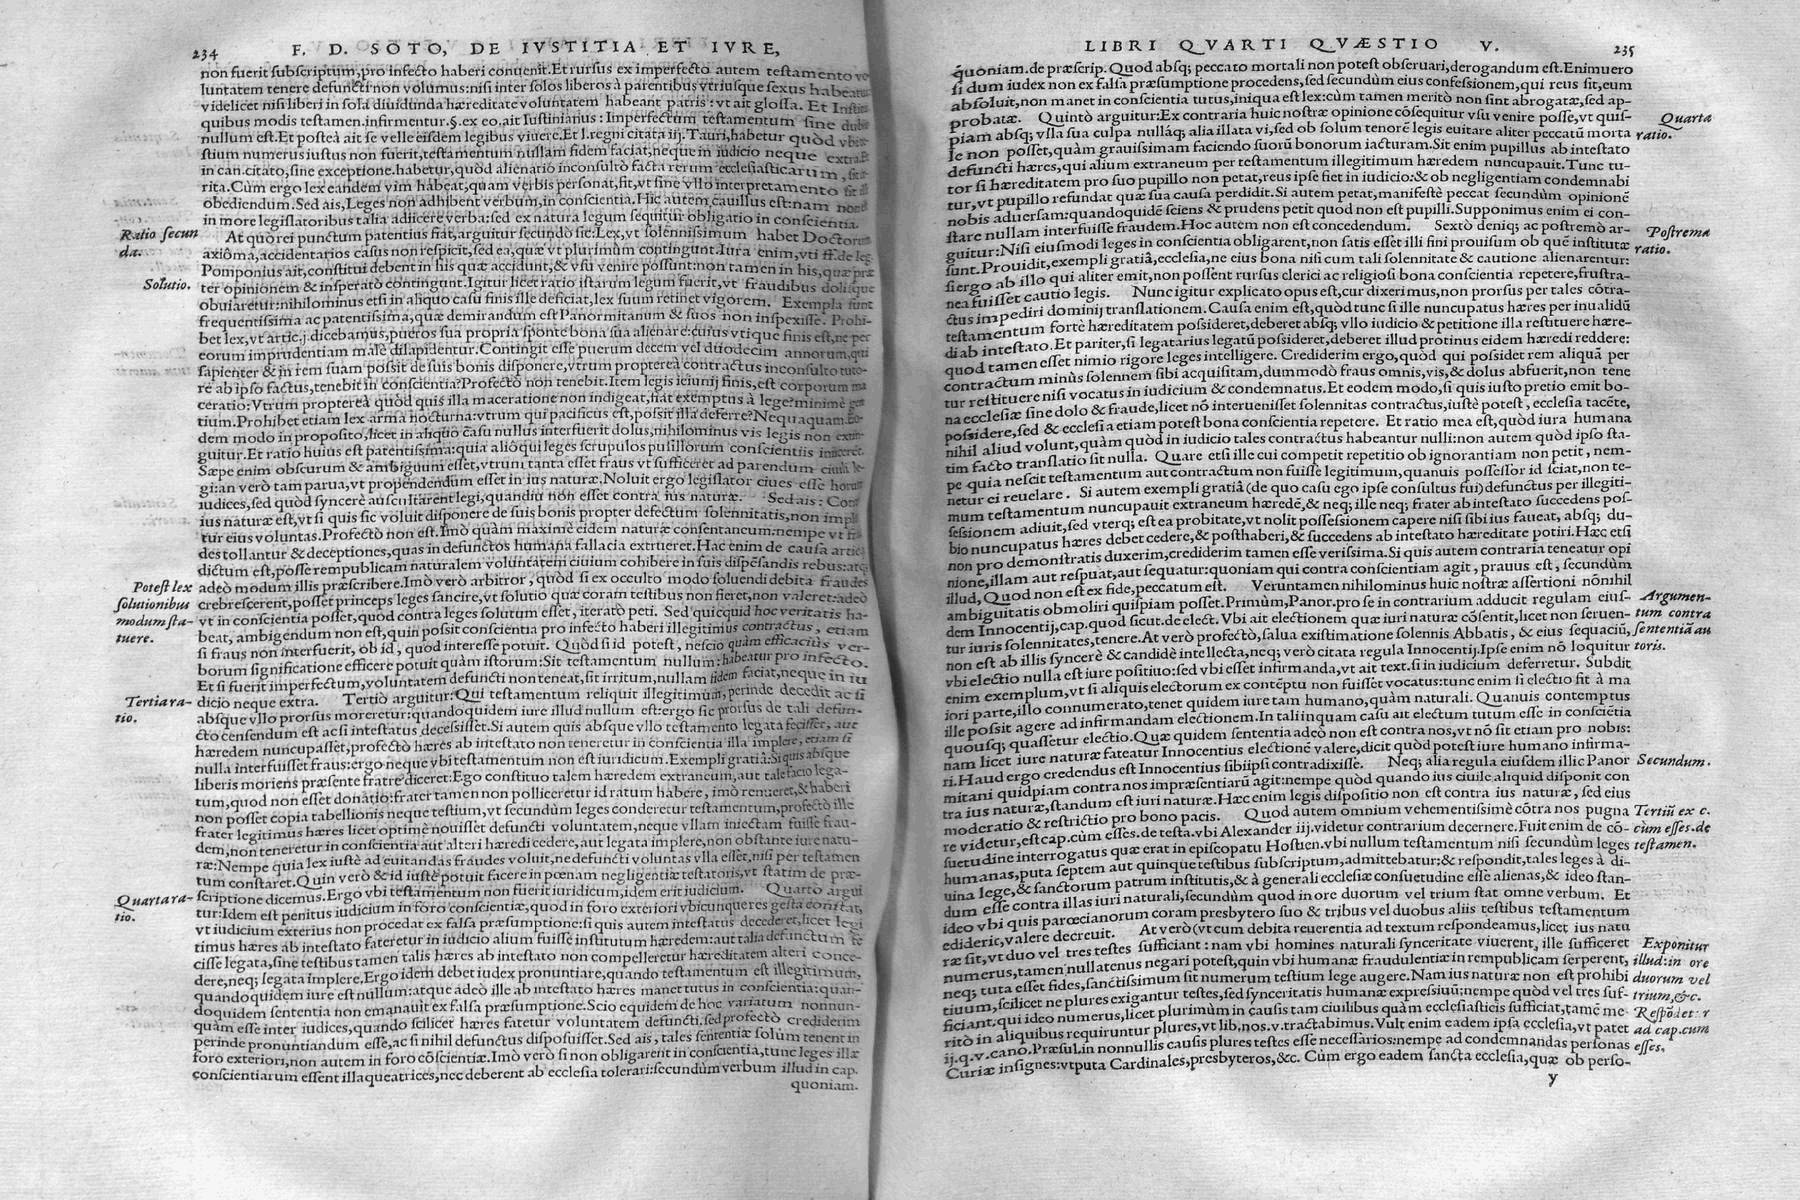 234 F. D. SOTO, DE IVSTITIA ET IVRE,
non fuerit subscriptum, pro infecto haberi conuenit. Et rursus ex imperfecto autem testamento vo
luntatem tenere defuncti non volumus: nisi inter solos liberos à parentibus vtriusque sexus habeatur
videlicet nisi liberi in sola diuidunda hæreditate voluntatem habeant patris: vt ait glossa. Et Instit.
quibus modis testamen. infirmentur. §. ex eo. ait Iustinianus: Imperfectum testamentum sine dubio
nullum est. Et posteà ait se velle eisdem legibus viuere. Et l. regni citata iij. Tauri, habetur quòd vbi te-
stium numerus iustus non fuerit, testamentum nullam fidem faciat, neque in iudicio neque extra. Et
in can. citato, sine exceptione. habetur, quòd alienatio inconsultò facta rerum ecclesiasticarum, sit ir-
rita. Cùm ergo lex eandem vim habeat, quam verbis personat, fit, vt sine vllo interpretamento sit illi
obediendum. Sed ais, Leges non adhibent verbum, in conscientia. Hic autem cauillus est: nam non est
in more legislatoribus talia adiicere verba: sed ex natura legum sequitur obligatio in conscientia.
Ratio secun
da.
At quò rei punctum patentius fiat, arguitur secundò sic: Lex, vt solennissimum habet Doctorum
axiôma, accidentarios casus non respicit, sed ea, quæ vt plurimùm contingunt. Iura enim, vti ff. de leg.
Pomponius ait, constitui debent in his quæ accidunt, & vsu venire possunt: non tamen in his, quæ præ
Solutio.
ter opinionem & insperatò contingunt. Igitur licet ratio istarum legum fuerit, vt fraudibus dolisque
obuiaretur: nihilominus etsi in aliquo casu finis ille deficiat, lex suum retinet vigorem. Exempla sunt
frequentissima ac patentissima, quæ demirandum est Panormitanum & suos non inspexisse. Prohi-
bet lex, vt artic. j. dicebamus, pueros sua propria sponte bona sua alienare: cuius vtique finis est, ne per
eorum imprudentiam malè dilapidentur. Contingit esse puerum decem vel duodecim annorum, qui
sapienter & in rem suam possit de suis bonis disponere, vtrum proptereà contractus inconsulto tuto-
re ab ipso factus, tenebit in conscientia? Profectò non tenebit. Item legis ieiunij finis, est corporum ma
ceratio: Vtrum proptereà quòd quis illa maceratione non indigeat, fiat exemptus à lege? minimè gen
tium. Prohibet etiam lex arma nocturna: vtrum qui pacificus est, possit illa deferre? Nequaquam. Eo-
dem modo in proposito, licet in aliquo casu nullus interfuerit dolus, nihilominus vis legis non extin-
guitur. Et ratio huius est patentissima: quia aliôqui leges scrupulos pusillorum conscientiis iniicerent.
Sæpe enim obscurum & ambiguum esset, vtrum tanta esset fraus vt sufficeret ad parendum ciuili le-
gi: an verò tam parua, vt propendendum esset in ius naturæ. Noluit ergo legislator ciues esse horum
iudices, sed quòd syncerè auscultarent legi, quandiu non esset contra ius naturæ. Sed ais: Con-
ius naturæ est, vt si quis sic voluit disponere de suis bonis propter defectum solennitatis, non imple
tur eius voluntas. Profectò non est. Imò quàm maximè eidem naturæ consentaneum: nempe vt frau
des tollantur & deceptiones, quas in defunctos humana fallacia extrueret. Hac enim de causa artic. j.
dictum est, posse rempublicam naturalem voluntatem ciuium cohibere in suis dispēsandis rebus: atq;
Potest lex
solutionibus
modum sta-
tuere.
adeò modum illis præscribere. Imò verò arbitror, quòd si ex occulto modo soluendi debita fraudes
crebrescerent, posset princeps leges sancire, vt solutio quæ coram testibus non fieret, non valeret: adeò
vt in conscientia posset, quòd contra leges solutum esset, iteratò peti. Sed quicquid hoc veritatis ha-
beat, ambigendum non est, quin possit conscientia pro infecto haberi illegitimus contractus, etiam
si fraus non interfuerit, ob id, quod interesse potuit. Quòd si id potest, nescio quàm efficacius ver-
borum significatione efficere potuit quàm istorum: Sit testamentum nullum: habeatur pro infecto.
Et si fuerit imperfectum, voluntatem defuncti non teneat, sit irritum, nullam fidem faciat, neque in iu
Tertia ra-
tio.
dicio neque extra. Tertiò arguitur: Qui testamentum reliquit illegitimum, perinde decedit ac si
absque vllo prorsus moreretur: quandoquidem iure illud nullum est: ergo sic prorsus de tali defun-
cto censendum est ac si intestatus decessisset. Si autem quis absque vllo testamento legata fecisset, aut
hæredem nuncupasset, profectò hæres ab intestato non teneretur in conscientia illa implere, etiam si
nulla interfuisset fraus: ergo neque vbi testamentum non est iuridicum. Exempli gratiâ: Si quis absque
liberis moriens præsente fratre diceret: Ego constituo talem hæredem extraneum, aut tale facio lega-
tum, quod non esset donatio: frater tamen non polliceretur id ratum habere, imò renueret, & haberi
non posset copia tabellionis neque testium, vt secundùm leges conderetur testamentum, profectò ille
frater legitimus hæres licet optimè nouisset defuncti voluntatem, neque vllam iniectam fuisse frau-
dem, non teneretur in conscientia aut alteri hæredi cedere, aut legata implere, non obstante iure natu-
ræ: Nempe quia lex iustè ad euitandas fraudes voluit, ne defuncti voluntas vlla esset, nisi per testamen
tum constaret. Quin verò & id iustè potuit facere in pœnam negligentiæ testatoris, vt statim de præ-
Quarta ra-
tio.
scriptione dicemus. Ergo vbi testamentum non fuerit iuridicum, idem erit iudicium. Quartò argui
tur: Idem est penitus iudicium in foro conscientiæ, quod in foro exteriori vbicunque res gesta constat,
vt iudicium exterius non procedat ex falsa præsumptione: si quis autem intestatus decederet, licet legi
timus hæres ab intestato fateretur in iudicio alium fuisse institutum hæredem: aut talia defunctum fe
cisse legata, sine testibus tamen talis hæres ab intestato non compelleretur hæreditatem alteri conce-
dere, neq; legata implere. Ergo idem debet iudex pronuntiare, quando testamentum est illegitimum,
quandoquidem iure est nullum: atque adeò ille ab intestato hæres manet tutus in conscientia: quan-
doquidem sententia non emanauit ex falsa præsumptione. Scio equidem de hoc variatum nonnun-
quàm esse inter iudices, quando scilicet hæres fatetur voluntatem defuncti, sed profectò crediderim
perinde pronuntiandum esse, ac si nihil defunctus disposuisset. Sed ais, tales sententiæ solùm tenent in
foro exteriori, non autem in foro cōscientiæ. Imò verò si non obligarent in conscientia, tunc leges illæ
conscientiarum essent illaqueatrices, nec deberent ab ecclesia tolerari: secundùm verbum illud in cap.
quoniam.
LIBRI QVARTI QVÆSTIO V. 235
quoniam. de præscrip. Quod absq; peccato mortali non potest obseruari, derogandum est. Enimuero
si dum iudex non ex falsa præsumptione procedens, sed secundùm eius confessionem, qui reus sit, eum
absoluit, non manet in conscientia tutus, iniqua est lex: cùm tamen meritò non sint abrogatæ, sed ap-
probatæ. Quintò arguitur: Ex contraria huic nostræ opinione cōsequitur vsu venire posse, vt quis-
Quarta
ratio.
piam absq; vlla sua culpa nullaq; alia illata vi, sed ob solum tenorē legis euitare aliter peccatū morta
le non posset, quàm grauissimam faciendo suorū bonorum iacturam. Sit enim pupillus ab intestato
defuncti hæres, qui alium extraneum per testamentum illegitimum hæredem nuncupauit. Tunc tu-
tor si hæreditatem pro suo pupillo non petat, reus ipse fiet in iudicio: & ob negligentiam condemnabi
tur, vt pupillo refundat quæ sua causa perdidit. Si autem petat, manifestè peccat secundùm opinionē
nobis aduersam: quandoquidē sciens & prudens petit quod non est pupilli. Supponimus enim ei con-
stare nullam interfuisse fraudem. Hoc autem non est concedendum. Sextò deniq; ac postremò ar-
Postrema
ratio.
guitur: Nisi eiusmodi leges in conscientia obligarent, non satis esset illi fini prouisum ob quē institutæ
sunt. Prouidit, exempli gratiâ, ecclesia, ne eius bona nisi cum tali solennitate & cautione alienarentur:
si ergo ab illo qui aliter emit, non possent rursus clerici ac religiosi bona conscientia repetere, frustra-
nea fuisset cautio legis. Nunc igitur explicato opus est, cur dixerimus, non prorsus per tales cōtra-
ctus impediri dominij translationem. Causa enim est, quòd tunc si ille nuncupatus hæres per inualidū
testamentum fortè hæreditatem possideret, deberet absq; vllo iudicio & petitione illa restituere hære-
di ab intestato. Et pariter, si legatarius legatū possideret, deberet illud protinus eidem hæredi reddere:
quod tamen esset nimio rigore leges intelligere. Crediderim ergo, quòd qui possidet rem aliquā per
contractum minùs solennem sibi acquisitam, dummodò fraus omnis, vis, & dolus abfuerit, non tene
tur restituere nisi vocatus in iudicium & condemnatus. Et eodem modo, si quis iusto pretio emit bo-
na ecclesiæ sine dolo & fraude, licet nō interuenisset solennitas contractus, iustè potest, ecclesia tacēte,
possidere, sed & ecclesia etiam potest bona conscientia repetere. Et ratio mea est, quòd iura humana
nihil aliud volunt, quàm quòd in iudicio tales contractus habeantur nulli: non autem quòd ipso sta-
tim facto translatio sit nulla. Quare etsi ille cui competit repetitio ob ignorantiam non petit, nem-
pe quia nescit testamentum aut contractum non fuisse legitimum, quanuis possessor id sciat, non te-
netur ei reuelare. Si autem exempli gratiâ (de quo casu ego ipse consultus fui) defunctus per illegiti-
mum testamentum nuncupauit extraneum hæredē, & neq; ille neq; frater ab intestato succedens pos-
sessionem adiuit, sed vterq; est ea probitate, vt nolit possessionem capere nisi sibi ius faueat, absq; du-
bio nuncupatus hæres debet cedere, & posthaberi, & succedens ab intestato hæreditate potiri. Hæc etsi
non pro demonstratis duxerim, crediderim tamen esse verissima. Si quis autem contraria teneatur opi
nione, illam aut respuat, aut sequatur: quoniam qui contra conscientiam agit, prauus est, secundùm
illud, Quod non est ex fide, peccatum est. Veruntamen nihilominus huic nostræ assertioni nōnihil
Argumen-
tum contra
sententiā au
toris.
ambiguitatis obmoliri quispiam posset. Primùm, Panor. pro se in contrarium adducit regulam eius-
dem Innocentij, cap. quod sicut. de elect. Vbi ait electionem quæ iuri naturæ cōsentit, licet non seruen-
tur iuris solennitates, tenere. At verò profectò, salua existimatione solennis Abbatis, & eius sequaciū,
non est ab illis syncerè & candidè intellecta, neq; verò citata regula Innocentij. Ipse enim nō loquitur
vbi electio nulla est iure positiuo: sed vbi esset infirmanda, vt ait text. si in iudicium deferretur. Subdit
enim exemplum, vt si aliquis electorum ex contēptu non fuisset vocatus: tunc enim si electio fit à ma
iori parte, illo connumerato, tenet quidem iure tam humano, quàm naturali. Quanuis contemptus
ille possit agere ad infirmandam electionem. In tali inquam casu ait electum tutum esse in consciētia
quousq; quassetur electio. Quæ quidem sententia adeò non est contra nos, vt nō sit etiam pro nobis:
nam licet iure naturæ fateatur Innocentius electionē valere, dicit quòd potest iure humano infirma-
ri. Haud ergo credendus est Innocentius sibiipsi contradixisse. Neq; alia regula eiusdem illic Panor
Secundum.
mitani quidpiam contra nos impræsentiarū agit: nempe quòd quando ius ciuile aliquid disponit con
tra ius naturæ, standum est iuri naturæ. Hæc enim legis dispositio non est contra ius naturæ, sed eius
moderatio & restrictio pro bono pacis. Quod autem omnium vehementissimè cōtra nos pugna
Tertiū ex c.
cùm esses. de
testamen.
re videtur, est cap. cùm esses. de testa. vbi Alexander iij. videtur contrarium decernere. Fuit enim de cō-
suetudine interrogatus quæ erat in episcopatu Hostien. vbi nullum testamentum nisi secundùm leges
humanas, puta septem aut quinque testibus subscriptum, admittebatur: & respondit, tales leges à di-
uina lege, & sanctorum patrum institutis, & à generali ecclesiæ consuetudine esse alienas, & ideo stan-
dum esse contra illas iuri naturali, secundùm quod in ore duorum vel trium stat omne verbum. Et
ideo vbi quis parœcianorum coram presbytero suo & tribus vel duobus aliis testibus testamentum
edidezit, valere decreuit. At verò (vt cum debita reuerentia ad textum respondeamus, licet ius natu
Exponitur
illud: in ore
duorum vel
trium, &c.
ræ sit, vt duo vel tres testes sufficiant: nam vbi homines naturali synceritate viuerent, ille sufficeret
numerus, tamen nullatenus negari potest, quin vbi humanæ fraudulentiæ in rempublicam serperent,
neq; tuta esset fides, sanctissimum sit numerum testium lege augere. Nam ius naturæ non est prohibi
tiuum, scilicet ne plures exigantur testes, sed synceritatis humanæ expressiuū: nempe quòd vel tres suf-
Respōdet: r
ad cap. cum
esses.
ficiant, qui ideo numerus, licet plurimùm in causis tam ciuilibus quàm ecclesiasticis sufficiat, tamē me
ritò in aliquibus requiruntur plures, vt lib. nos. v. tractabimus. Vult enim eadem ipsa ecclesia, vt patet
ij. q. v. cano. Præsul. in nonnullis causis plures testes esse necessarios: nempe ad condemnandas personas
Curiæ insignes: vtputa Cardinales, presbyteros, &c. Cùm ergo eadem sancta ecclesia, quæ ob perso-
y